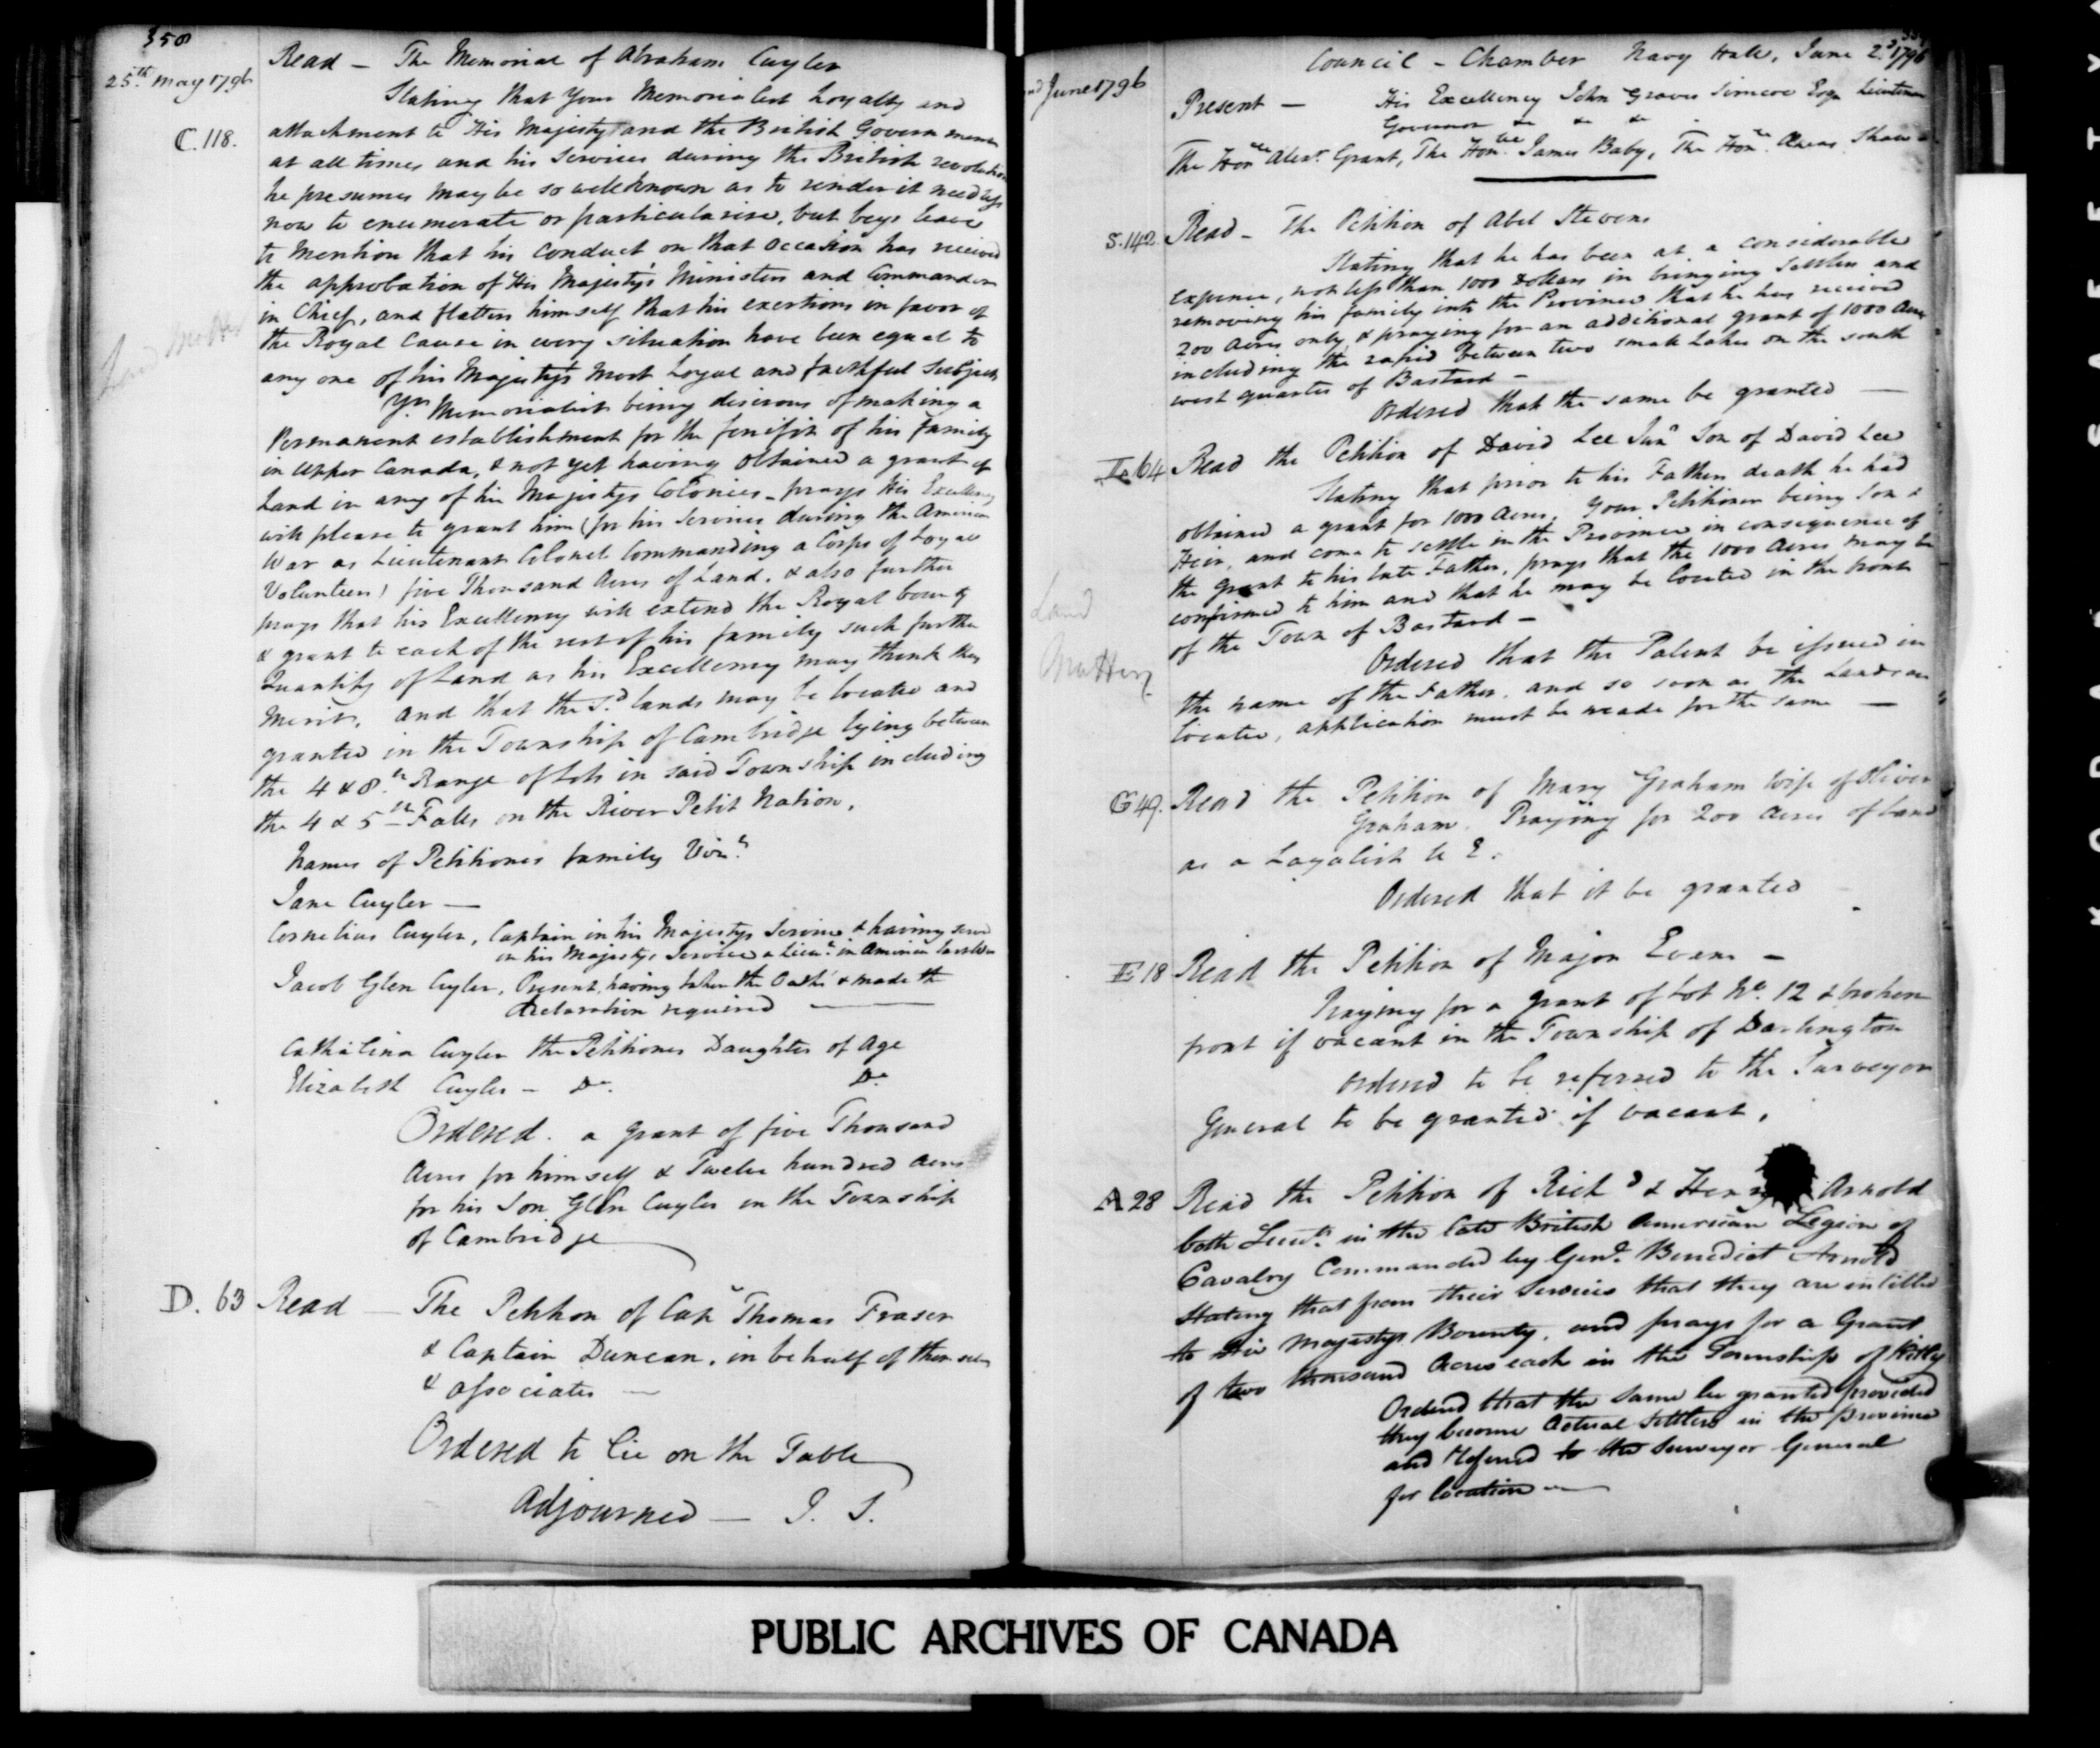 358
25th May 1796
Read – The Memorial of Abraham Cuyler
Stating that Your Memorialist Loyalty and
C. 118.
attachment to His Majesty and the British Government
at all times and his Services during the British revolution
he presumes may be so well known as to render it needless
now to enumerate or particularise, but begs leave
to Mention that his Conduct on that occasion has received
the approbation of His Majesty's Ministers and Commanders
in Chief, and flatters himself that his exertions in favor of
the Royal Cause in every situation have been equal to
any one of his Majesty's Most Loyal and faithful Subjects
Land Matters
Yr Memorialist being desirous of making a
Permanent establishment for the benefit of his family
in Upper Canada, & not yet having Obtained a grant of
Land in any of his Majestys Colonies – prays His Excellency
will please to grant him (for his Services during the American
War as Lieutenant Colonel Commanding a Corps of Loyal
Volunteers) five Thousand Acres of Land. & also further
prays that his Excellency will extend the Royal bounty
& grant to each of the rest of his family such further
Quantity of Land as his Excellency may think they
Merit, and that the sd lands may be located and
granted in the Township of Cambridge lying between
the 4 & 8th Range of Lots in said Township including
the 4 & 5th Falls on the River Petit Nation.
Names of Petitioners family Vizt
Jane Cuyler —
Cornelius Cuyler, Captain in his Majestys Service & having served
in his Majestys Service a Lieut in America last War
Jacob Glen Cuyler, Present, having taken the Oaths & made the
declaration required —
Cathalina Cuyler the Petitioners Daughter of Age
Elizabeth Cuyler – Do. Do
Ordered. a grant of five Thousand
Acres for himself & Twelve hundred Acres
for his Son Glen Cuyler in the Township
of Cambridge
D. 63 Read — The Petition of Capn Thomas Fraser
& Captain Duncan, in behalf of themselves
& associates —
Ordered to lie on the Table
Adjourned — J. S.
Council – Chamber Navy Hall, June 2d 1796
June 1796
Present — His Excellency John Graves Simcoe Esqr Lieutenant
Governor &c &c &c
The Honble Alexr Grant, The Honble James Baby, The Honble Æneas Shaw
S. 142. Read – The Petition of Abel Stevens
Stating that he has been at a considerable
expence, not less than 1000 Dollars in bringing Settlers and
removing his family into the Province that he has received
200 Acres only, & praying for an additional grant of 1000 Acres
including the rapid between two small Lakes on the south
west quarter of Bastard –
Ordered that the same be granted —
L 64 Read the Petition of David Lee Junr Son of David Lee
Stating that prior to his Fathers death he had
obtained a grant for 1000 Acres, Your Petitioner being Son &
Heir, and come to settle in the Province in consequence of
the grant to his late Father, prays that the 1000 Acres may be
confirmed to him and that he may be located in the front
of the Town of Bastard –
Land
Matters
Ordered that the Patent be issued in
the name of the Father, and so soon as the Lands are
located, application must be made for the same —
G 49. Read the Petition of Mary Graham wife of Oliver
Graham. Praying for 200 Acres of Land
as a Loyalist U E.
Ordered that it be granted
E 18 Read the Petition of Major Evans –
Praying for a grant of Lot No. 12 & broken
front if vacant in the Township of Darlington
Ordered to be referred to the Surveyor
General to be granted if vacant.
A 28 Read the Petition of Richd & Henry Arnold
both Lieuts in the late British American Legion of
Cavalry Commanded by Genl Benedict Arnold
Stating that from their Services that they are intitled
to His Majestys Bounty, and prays for a Grant
of two thousand Acres each in the Township of Kitley
Ordered that the same be granted provided
they become Actual Settlers in the province
and Referred to the Surveyor General
for location —
PUBLIC ARCHIVES OF CANADA